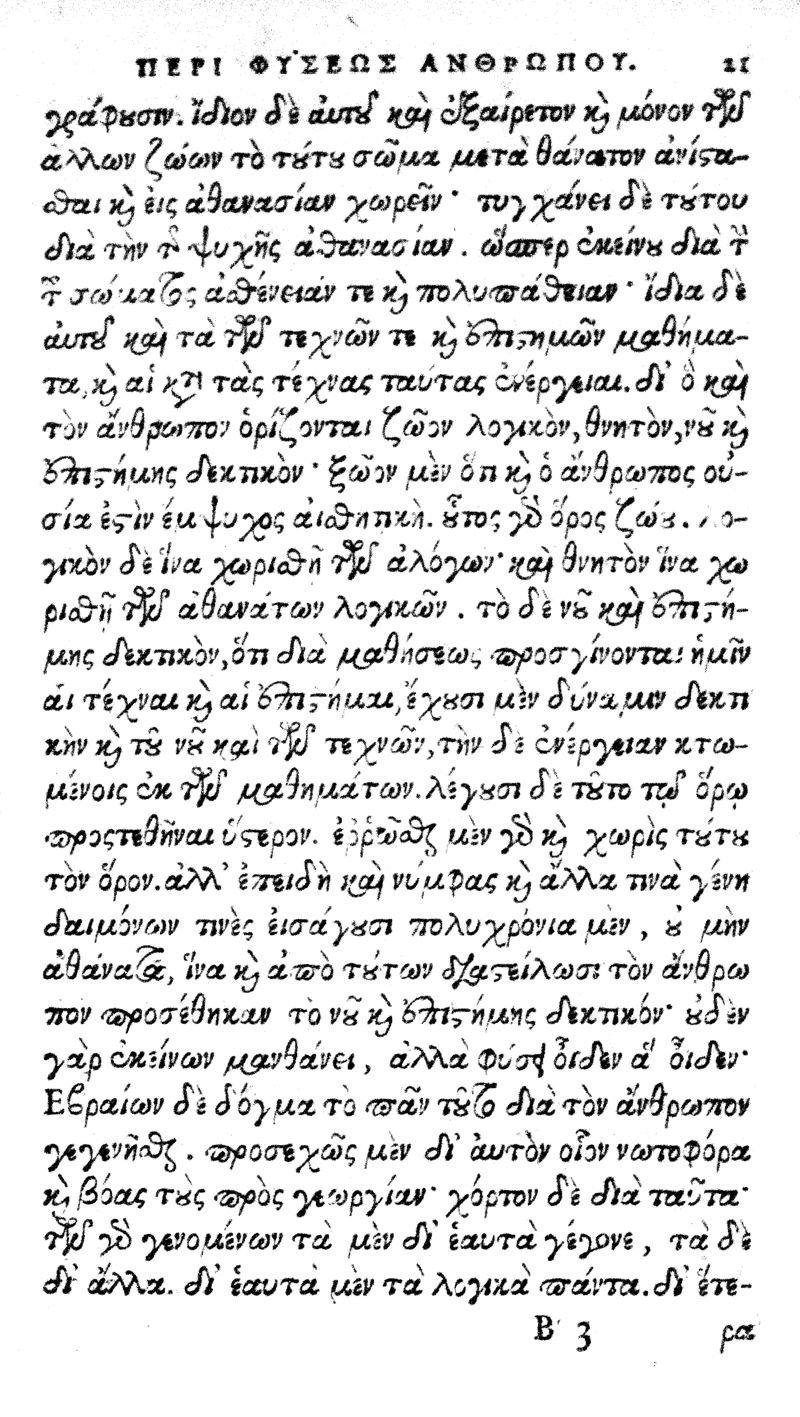 ΠΕΡΙ ΦΥΣΕΩΣ ΑΝΘΡΩΠΟΥ. 21
γράφουσιν. ἴδιον δὲ ἀυτοῦ καὶ ἐξαίρετον καὶ μόνον τῶν
ἀλλων ζώων τὸ τούτου σῶμα μετὰ θάνατον ἀνίστα-
σθαι καὶ ἐις ἀθανασίαν χωρεῖν· τυγχάνει δὲ τούτου
διὰ τὴν τῆς ψυχῆς ἀθανασίαν. ὥσπερ ἐκείνου διὰ τὴν
τοῦ σώματος ἀσθένειάν τε καὶ πολυπάθειαν· ἴδια δὲ
ἀυτοῦ καὶ τὰ τῶν τεχνῶν τε καὶ ἐπιστημῶν μαθήμα-
τα, καὶ αἱ κατὰ τὰς τέχνας ταύτας ἐνέργειαι. δι' ὃ καὶ
τὸν ἄνθρωπον ὁρίζονται ζῶον λογικὸν, θνητὸν, νοῦ καὶ
ἐπιστήμης δεκτικὸν· ζῶον μὲν ὅτι καὶ ὁ ἄνθρωπος οὐ-
σία ἐστὶν ἔμψυχος αἰσθητικὴ. οὗτος γὰρ ὅρος ζώου. λο-
γικὸν δὲ ἵνα χωρισθῆ τῶν ἀλόγων· καὶ θνητὸν ἵνα χω
ρισθῆ τῶν ἀθανάτων λογικῶν. τὸ δὲ νοῦ καὶ ἐπιστή-
μης δεκτικὸν, ὅτι διὰ μαθήσεως προσγίνονται ἡμῖν
ἁι τέχναι καὶ αἱ ἐπιστήμαι, ἔχουσι μὲν δύναμιν δεκτι
κὴν καὶ τοῦ νοῦ καὶ τῶν τεχνῶν, τὴν δὲ ἐνέργειαν κτω-
μένοις ἐκ τῶν μαθημάτων. λέγουσι δὲ τοῦτο τῷ ὅρῳ
προστεθῆναι ὕστερον. ἐῤῥῶσθαι μὲν γὰρ καὶ χωρὶς τούτου
τὸν ὅρον. ἀλλ' ἐπειδὴ καὶ νύμφας καὶ ἄλλα τινὰ γένη
δαιμόνων τινὲς ἐισάγουσι πολυχρόνια μὲν, οὐ μὴν
ἀθάνατα, ἵνα καὶ ἀπὸ τούτων διαστείλωσι τὸν ἄνθρω
πον προσέθηκαν τὸ νοῦ καὶ ἐπιστήμης δεκτικόν· οὐδὲν
γὰρ ἐκείνων μανθάνει, ἀλλὰ φύσει οἶδεν ἃ οἶδεν·
Εβραίων δὲ δόγμα τὸ πᾶν τοῦτο διὰ τὸν ἄνθρωπον
γεγενῆσθαι. προσεχῶς μὲν δι' ἀυτὸν οἷον νωτοφόρα
καὶ βόας τοὺς πρὸς γεωργίαν· χόρτον δὲ διὰ ταῦτα·
τῶν γὰρ γενομένων τὰ μὲν δι' ἑαυτὰ γέγονε, τὰ δὲ
δι' ἄλλα. δι' ἑαυτὰ μὲν τὰ λογικὰ πάντα. δι' ἕτε-
B 3 ρα